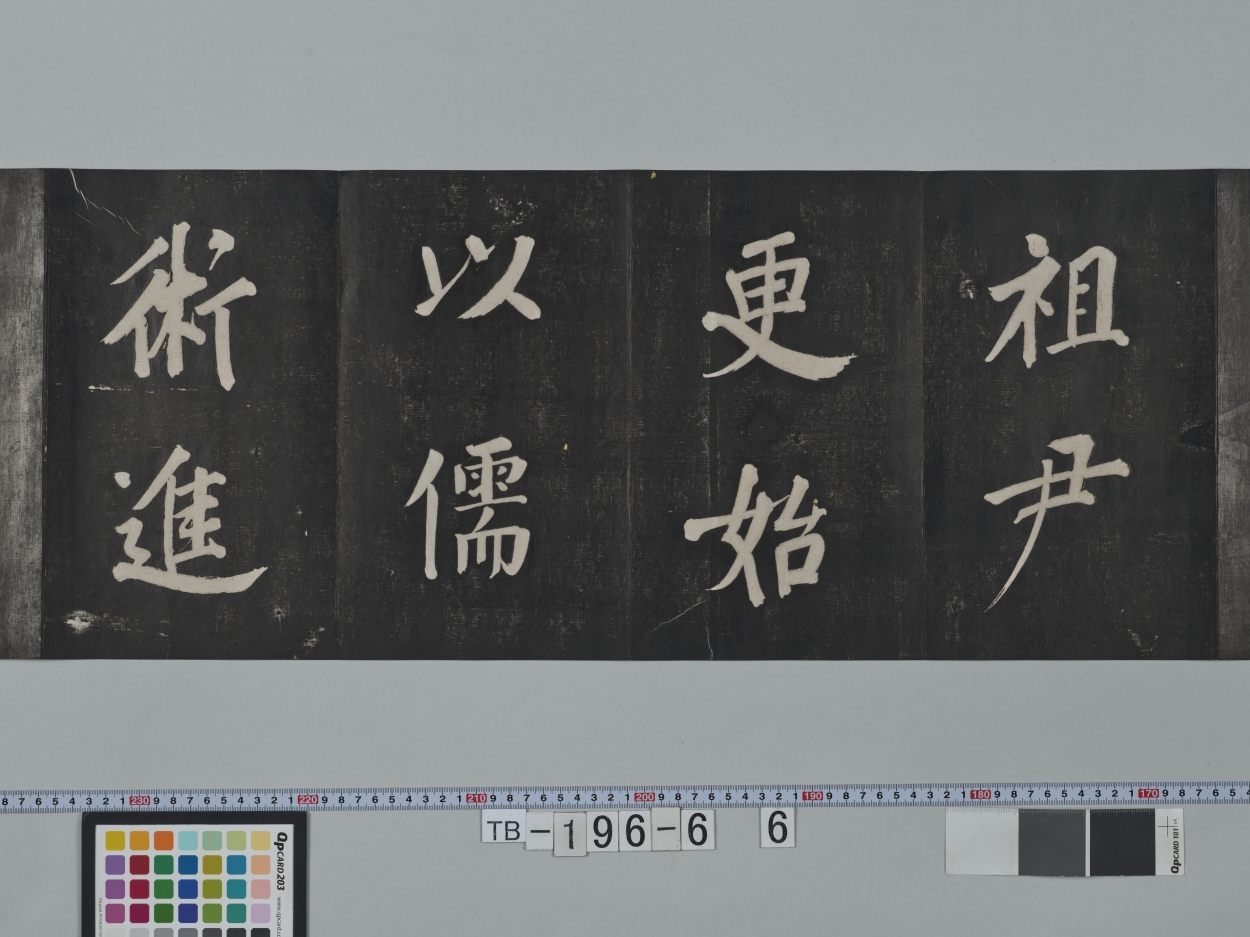 祖尹
更始
以儒
術進
8 7 6 5 4 3 2 1 230 9 8 7 6 5 4 3 2 1 220 9 8 7 6 5 4 3 2 1 210 9 8 7 6 5 4 3 2 1 200 9 8 7 6 5 4 3 2 1 190 9 8 7 6 5 4 3 2 1 180 9 8 7 6 5 4 3 2 1 170 9 8 7 6 5 4
TB-196-6 6
QPCARD 203
QPCARD 101